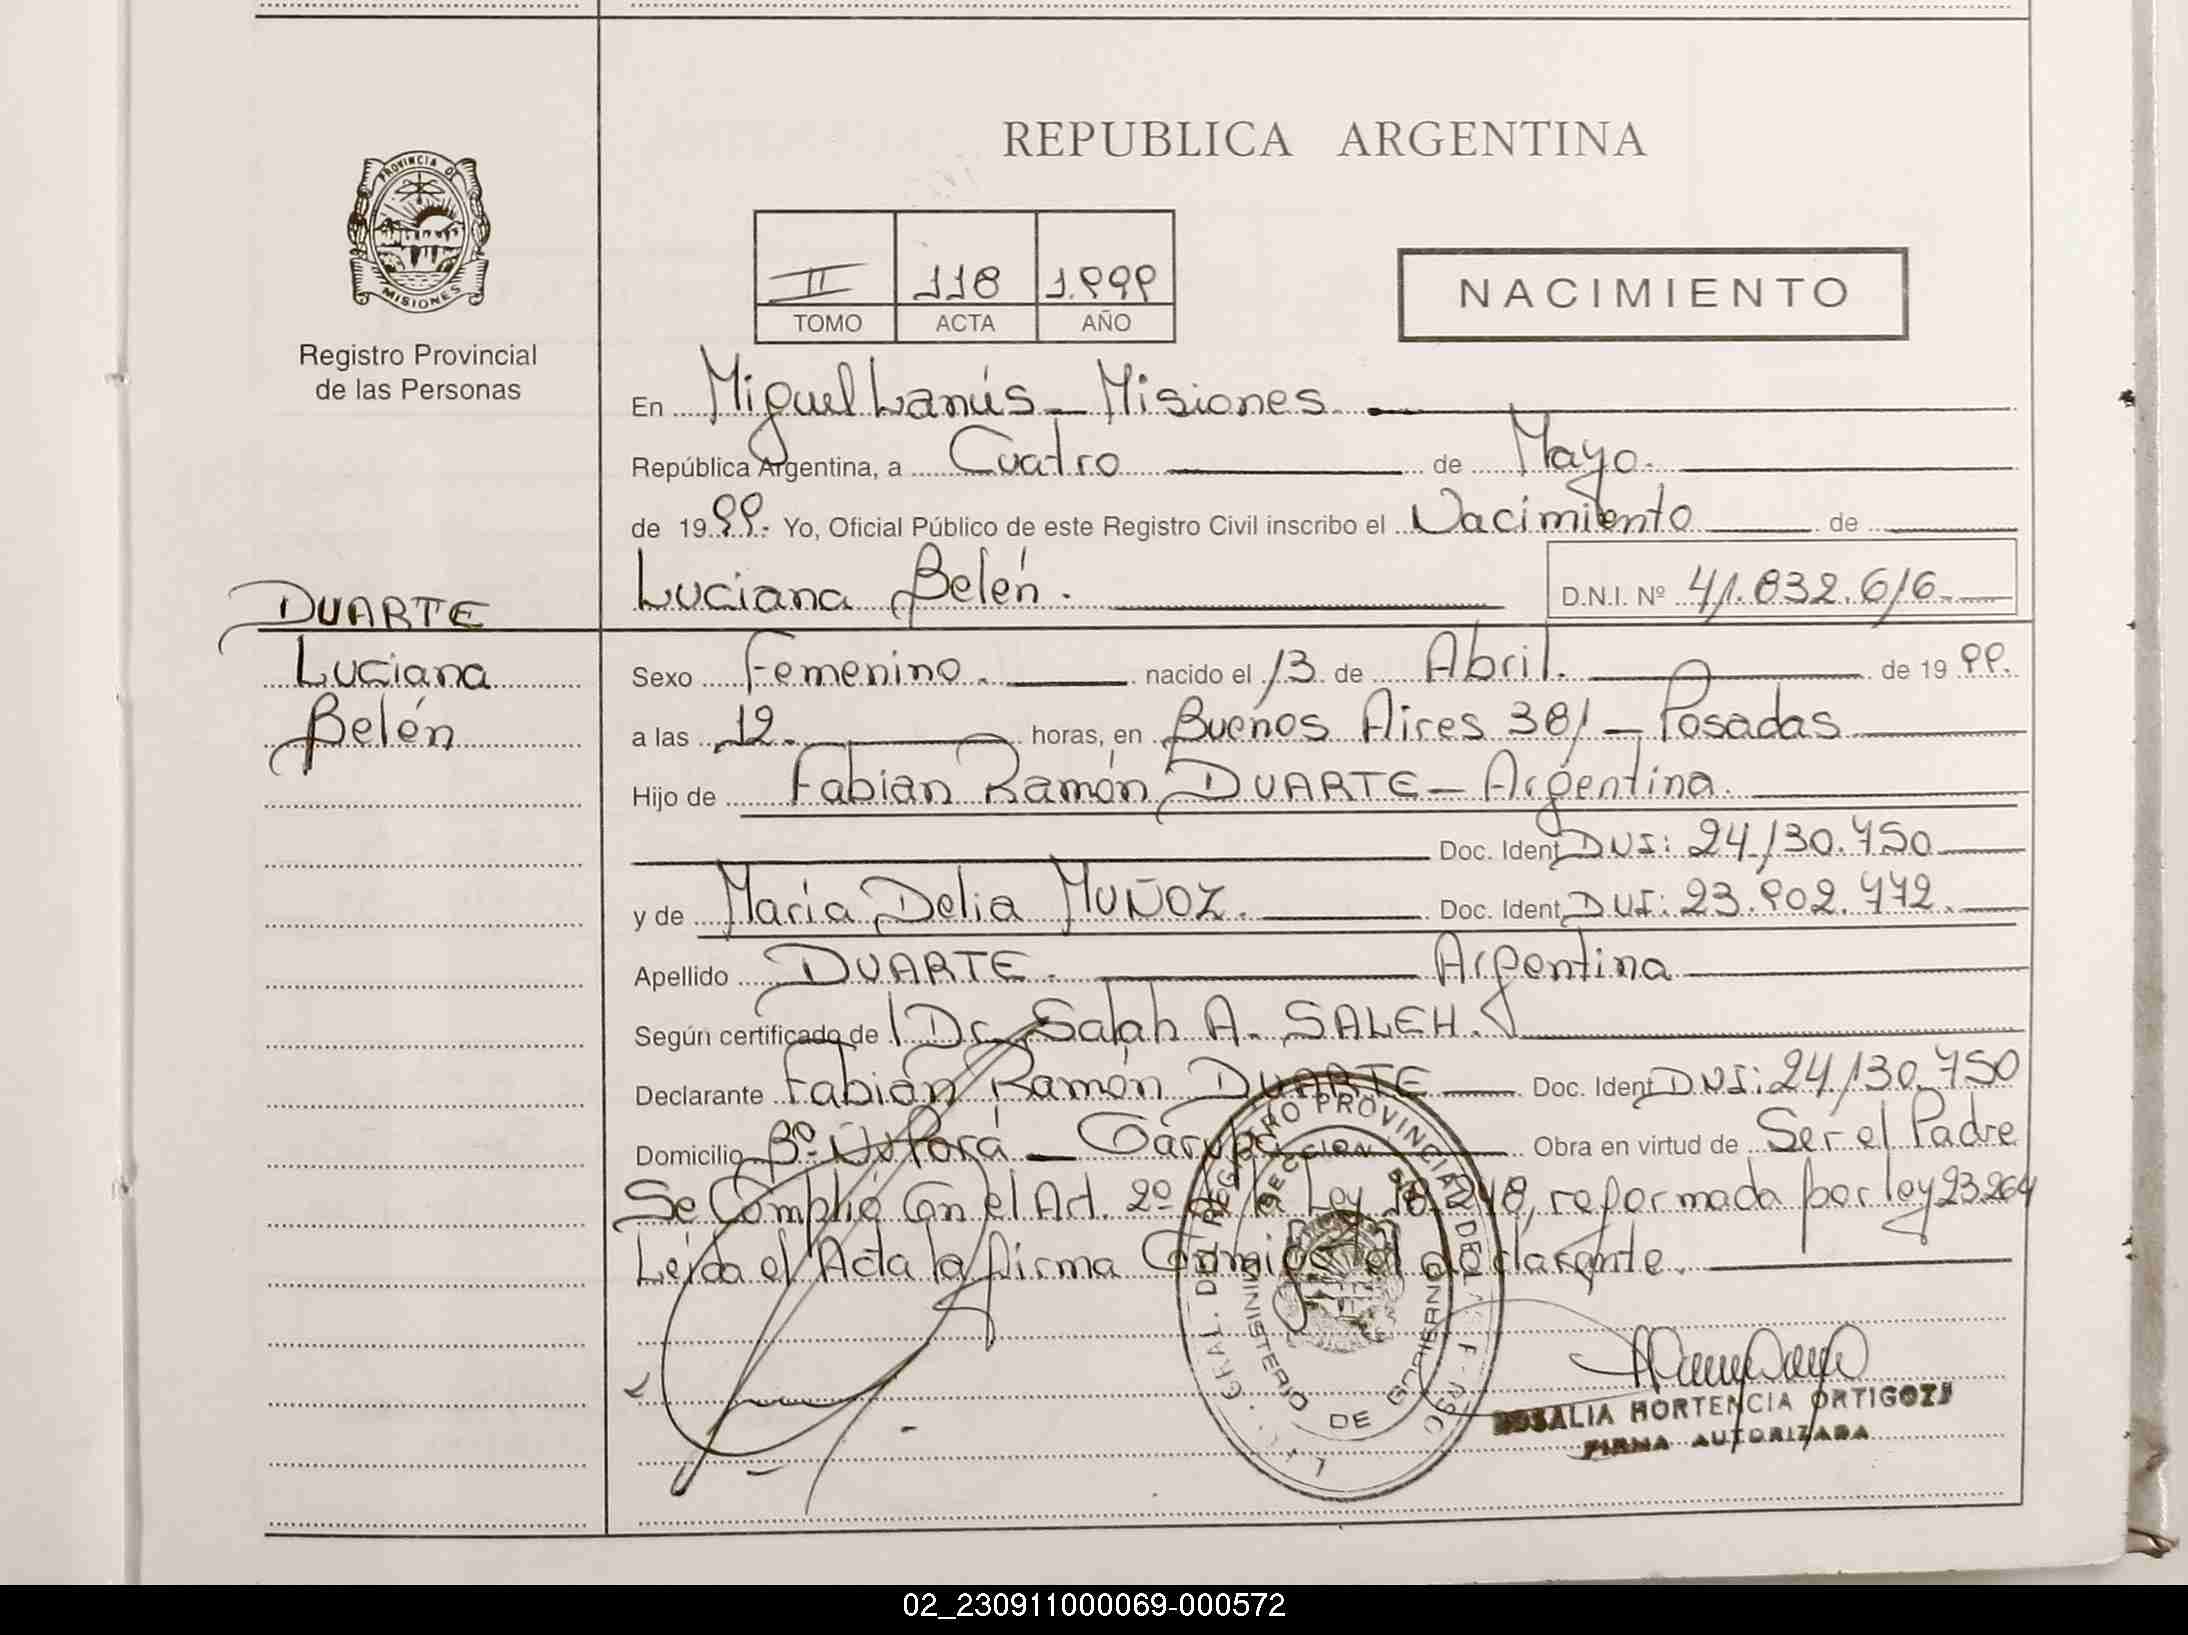 REPUBLICA ARGENTINA
PROVINCIA DE
MISIONES
Registro Provincial
de las Personas
II 118 1.999
TOMO ACTA AÑO
NACIMIENTO
En Miguel Lanús - Misiones.
República Argentina, a Cuatro de Mayo.
de 1999.- Yo, Oficial Público de este Registro Civil inscribo el Nacimiento de
Luciana Belén. D.N.I. Nº 41.832.616
DUARTE
Luciana
Belén
Sexo Femenino. nacido el 13 de Abril. de 1999.
a las 12. horas, en Buenos Aires 381 - Posadas
Hijo de Fabian Ramón DUARTE - Argentina.
Doc. Ident DNI: 24.130.750
y de María Delia MUÑOZ. Doc. Ident DNI: 23.902.772.
Apellido DUARTE. Argentina
Según certificado de Dr. Salah A. SALEH.
Declarante Fabián Ramón DUARTE Doc. Ident DNI: 24.130.750
Domicilio Bº Ñu Porá - Garupá Obra en virtud de Ser el Padre
Se Complió Con el Art. 2º de la Ley 18.248, reformada por ley 23.264
Leída el Acta la firma Conmigo el declarante.
REGISTRO PROVINCIAL DE LAS
DIRECCION
MINISTERIO DE GOBIERNO
ROSALIA HORTENCIA ORTIGOZA
FIRMA AUTORIZADA
02_230911000069-000572